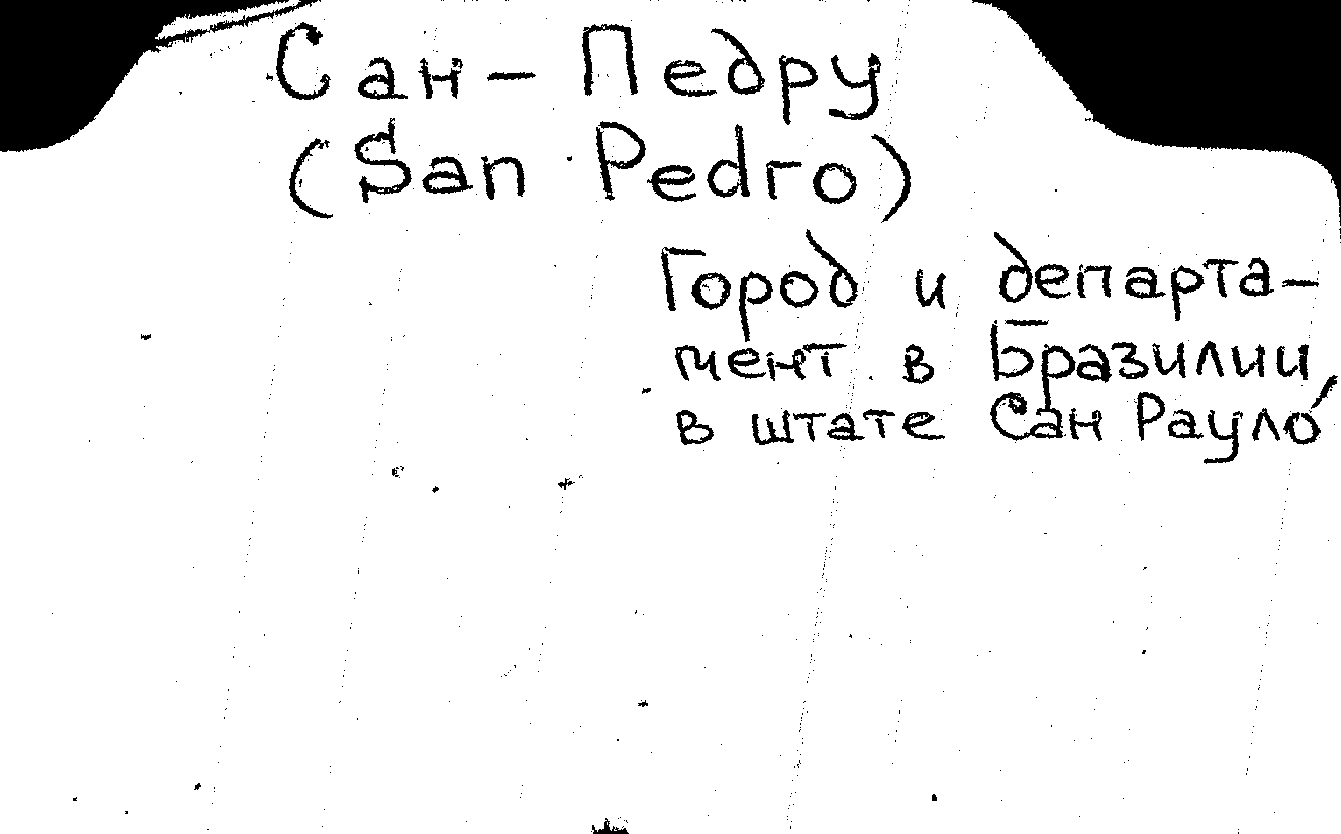 Сан-Педру
(San Pedro)
Город и департа-
мент в Бразилии,
в штате Сан Рауло